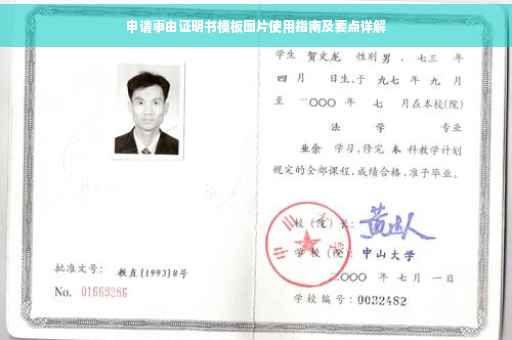 申请事由证明书模板图片使用指南及要点详解
学生 贺文龙 性别 男 、七三 年
四 月 日生,于 九七 年 九 月
至 二〇〇〇 年 七 月在本校(院)
法 学 专业
业余 学习,修完 本 科教学计划
规定的全部课程,成绩合格,准予毕业。
校(院)长:
学校(院): 中山大学
二〇〇〇 年 七 月 一 日
学校编号: 0032482
批准文号: 教直(1993)8号
No. 01669286